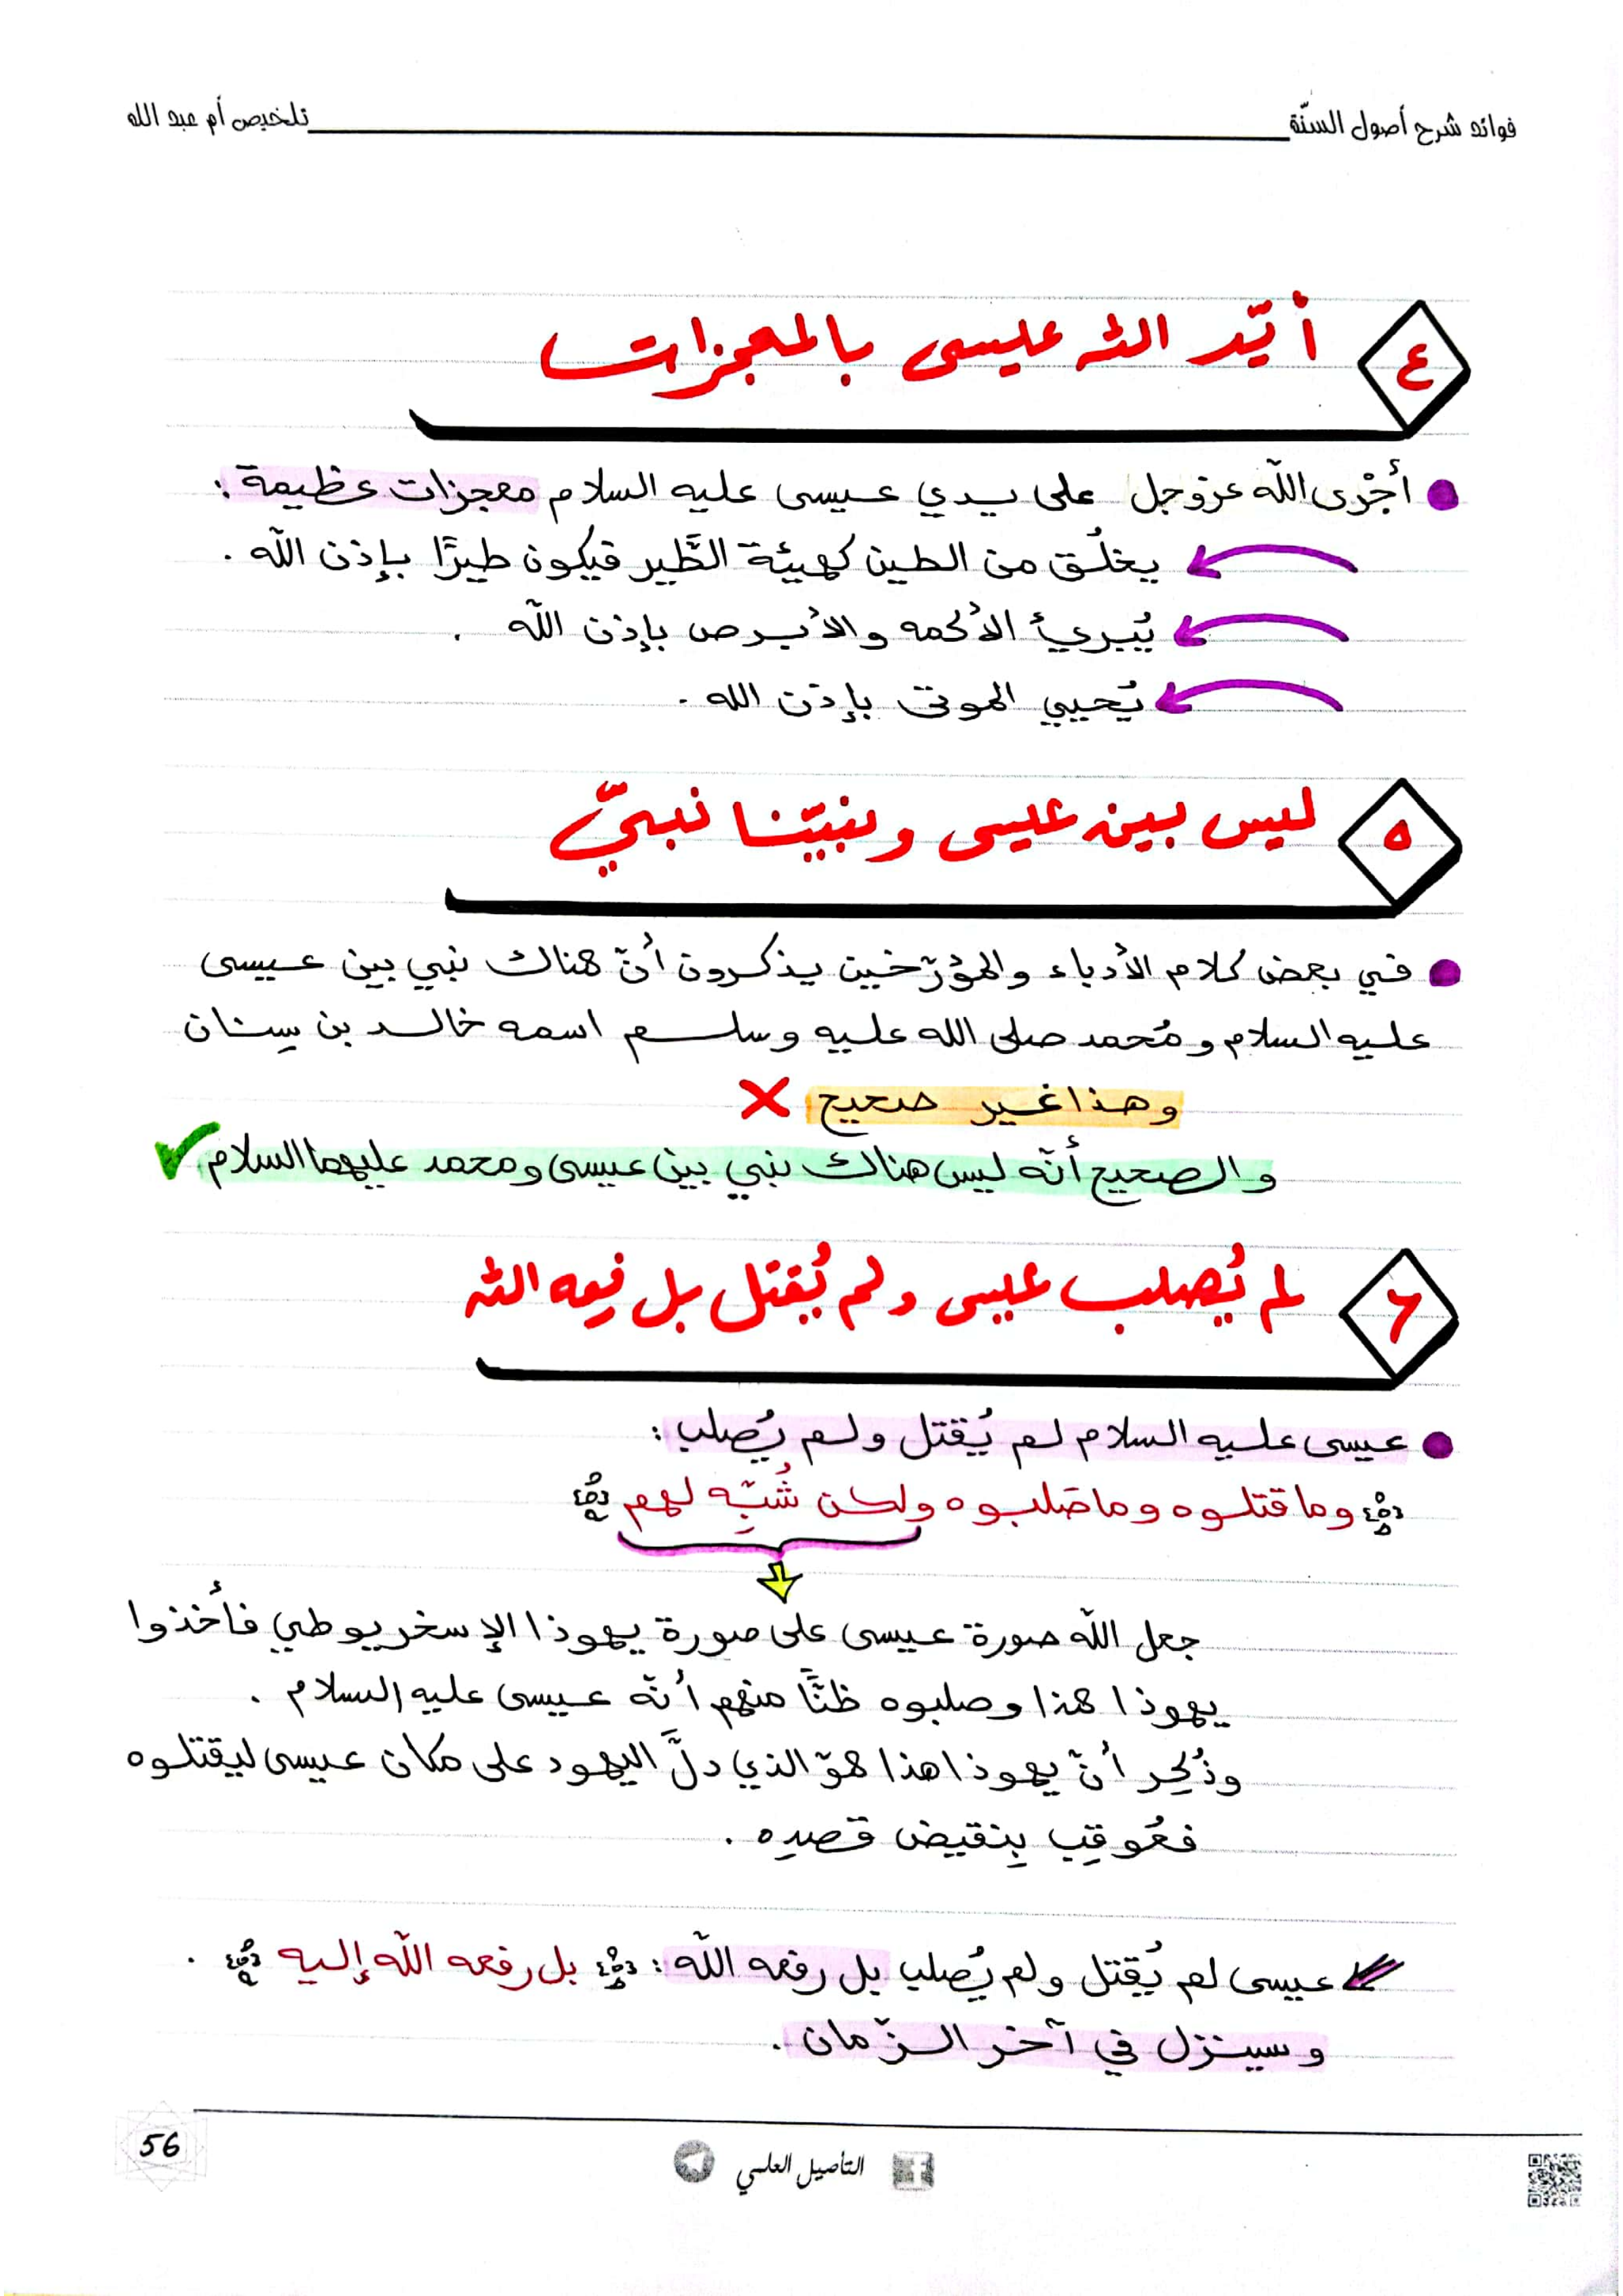 فوائد شرح أصول السنّة
تلخيص أم عبد الله
٤
أيّد الله عيسى بالمعجزات
أجْرى اللّه عزوجل على يدي عيسى عليه السلام معجزات عظيمة :
يخلُق من الطين كهيئة الطَّير فيكون طيرًا بإذن اللّه .
يُبرئ الأكمه والأبرص بإذن اللّه .
يُحيي الموتى بإذن الله .
٥
ليس بين عيسى ونبيّنا نبيّ
في بعض كلام الأدباء والمؤرّخين يذكرون أنّ هناك نبي بين عيسى
عليه السلام ومُحمد صلى الله عليه وسلم اسمه خالد بن سِنان
وهذا غير صحيح ✗
والصحيح أنّه ليس هناك نبي بين عيسى ومحمد عليهما السلام ✓
٦
لم يُصلب عيسى ولم يُقتل بل رفعه الله
عيسى عليه السلام لم يُقتل ولم يُصلب :
﴿ وما قتلوه وما صَلبوه ولكن شُبِّه لهم ﴾
جعل اللّه صورة عيسى على صورة يهوذا الإسخريوطي فأخذوا
يهوذا هذا وصلبوه ظنًّا منهم أنّه عيسى عليه السلام .
وذُكِر أنّ يهوذا هذا هوّ الذي دلَّ اليهود على مكان عيسى ليقتلوه
فعُوقِب بِنقيض قصدِه .
عيسى لم يُقتل ولم يُصلب بل رفعه اللّه : ﴿ بل رفعه اللّه إليه ﴾ .
وسينزل في آخر الزّمان .
56
التأصيل العلمي